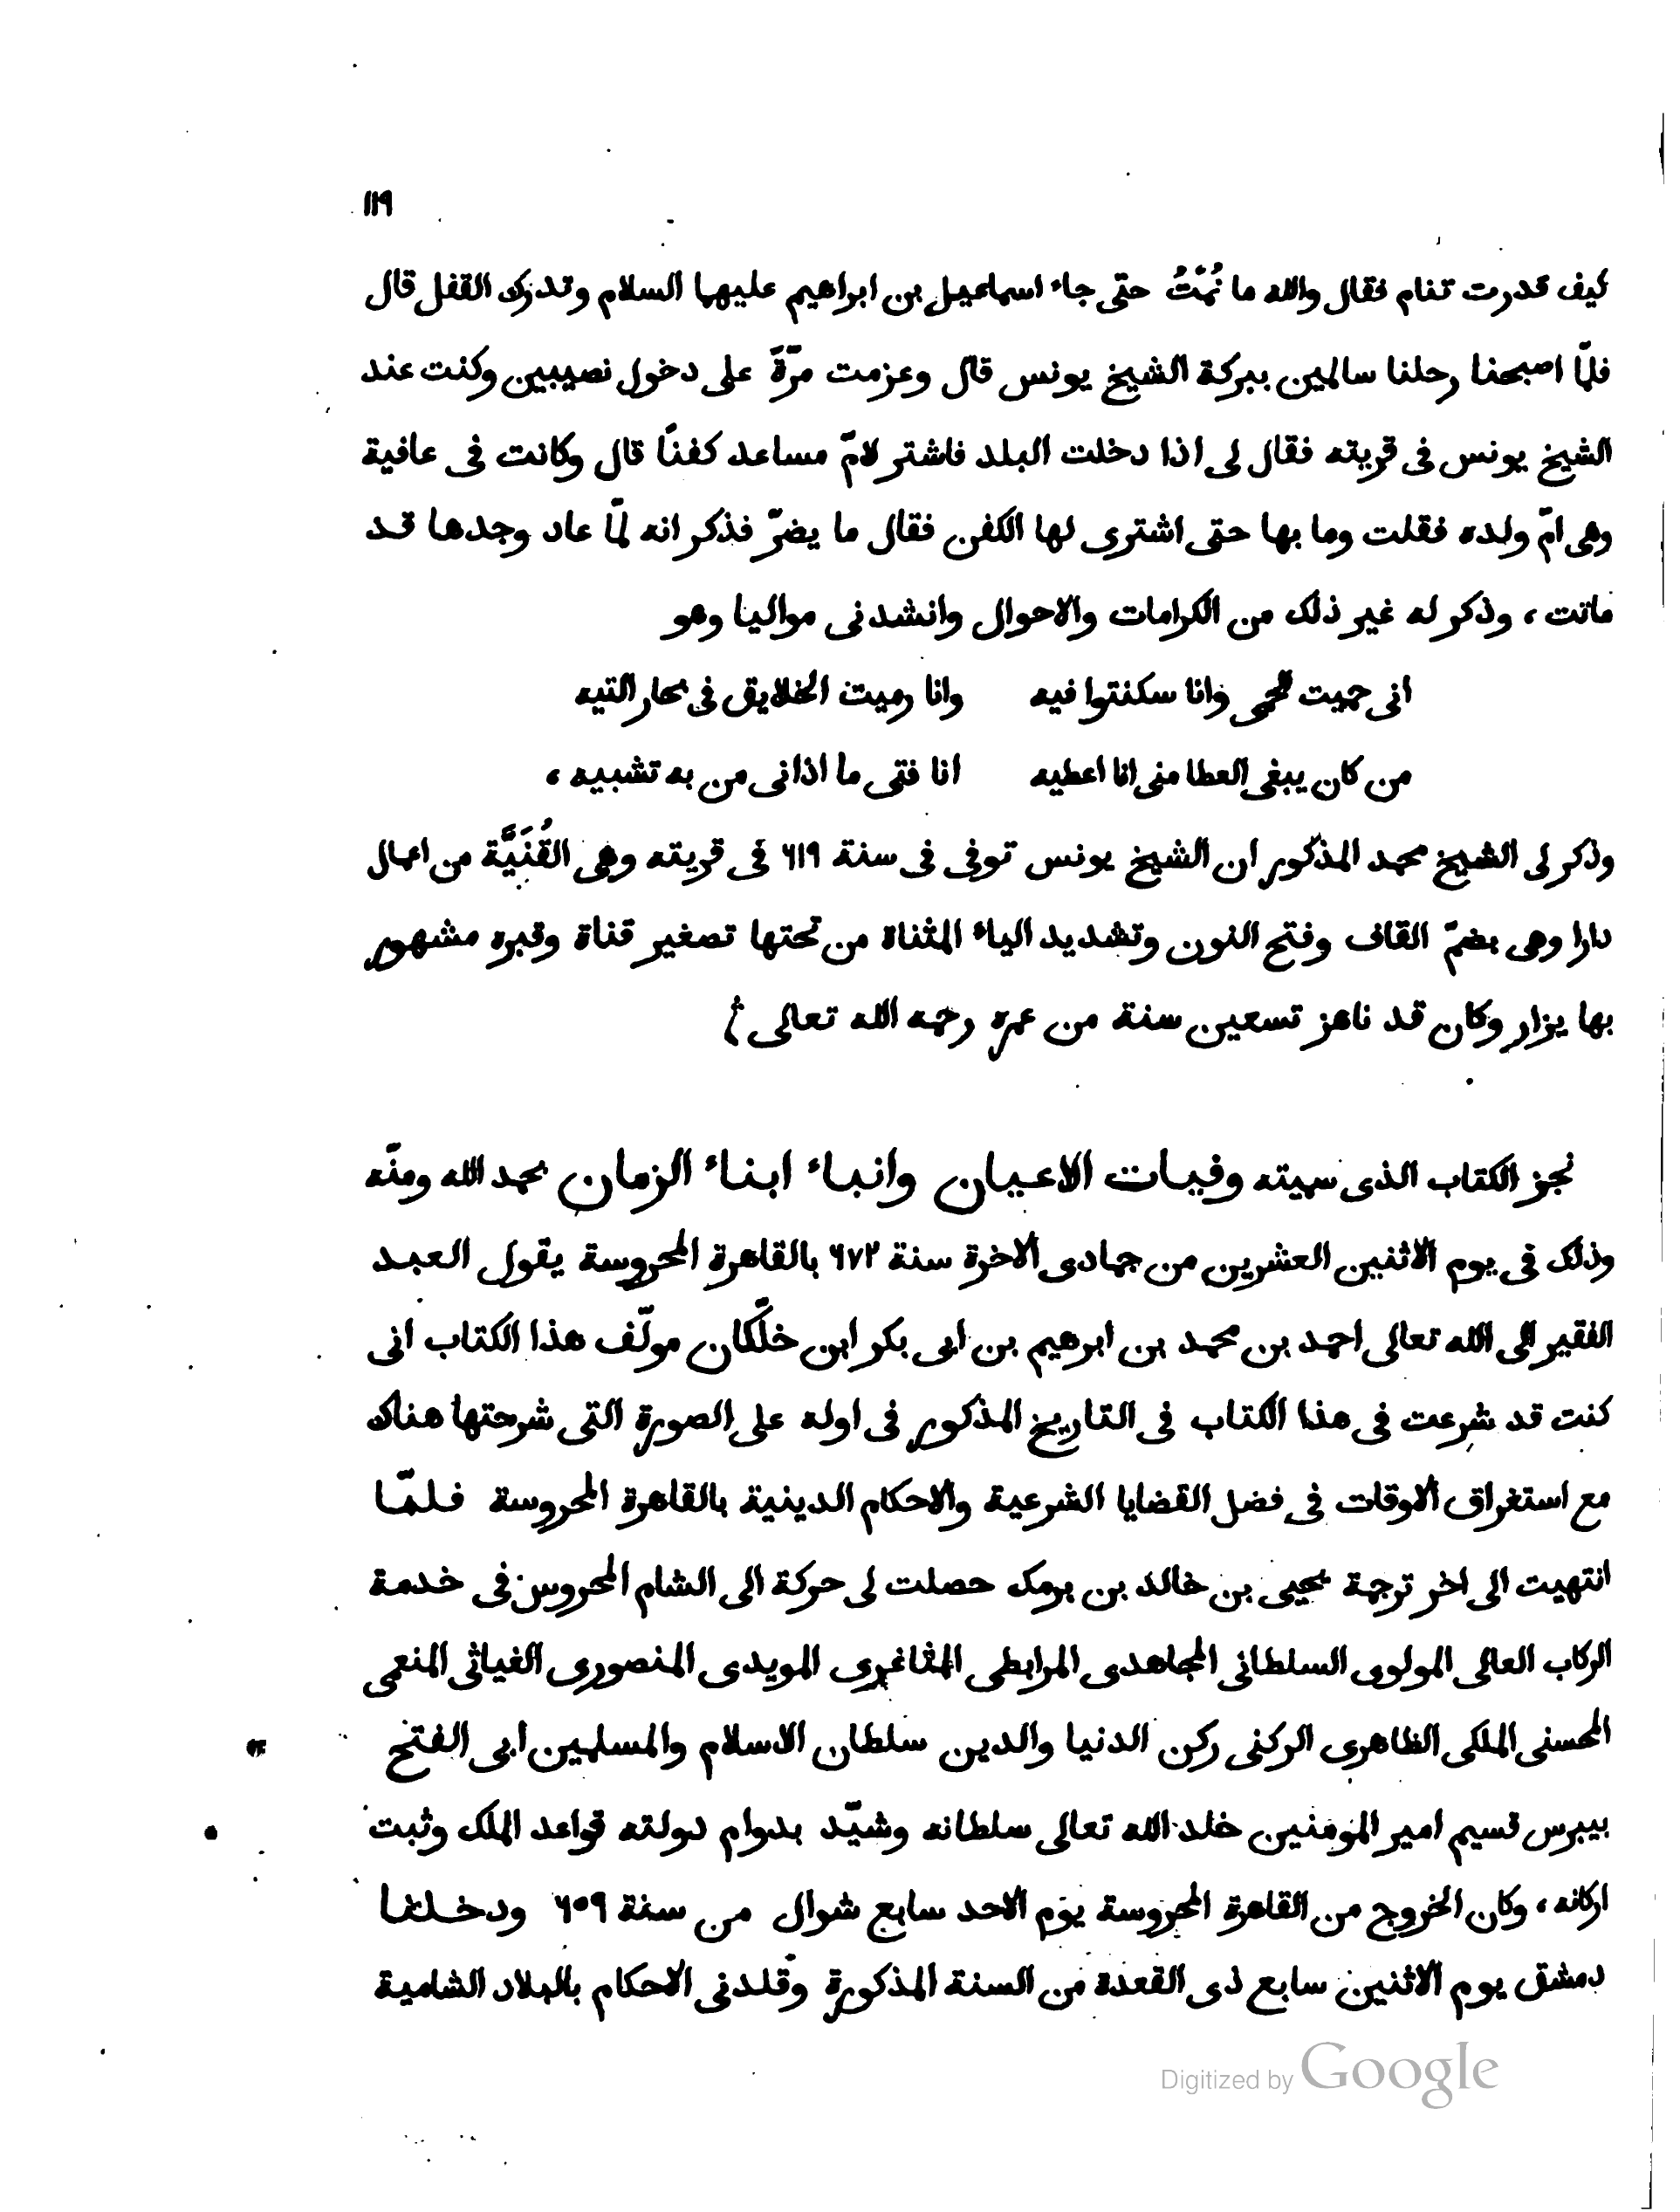 ١١٩
كيف قدرت تنام فقال والله ما نُمْتُ حتى جاء اسماعيل بن ابراهيم عليهما السلام وتدرك القفل قال
فلمّا اصبحنا رحلنا سالمين ببركة الشيخ يونس قال وعزمت مرّةً على دخول نصيبين وكنت عند
الشيخ يونس فى قريته فقال لى اذا دخلت البلد فاشتر لامّ مساعد كفنًا قال وكانت فى عافية
وهى امّ ولده فقلت وما بها حتى اشترى لها الكفن فقال ما يضرّ فذكر انه لمّا عاد وجدها قد
ماتت، وذكر له غير ذلك من الكرامات والاحوال وانشدنى مواليا وهو
انى حميت الحمى وانا سكنتوا فيه وانا رميت الخلايق فى بحار التيه
من كان يبغى العطا منى انا اعطيه انا فتى ما اذانى من به تشبيه،
وذكر لى الشيخ محمد المذكور ان الشيخ يونس توفى فى سنة ٦١٩ فى قريته وهى القُنَيَّة من اعمال
دارا وهى بضمّ القاف وفتح النون وتشديد الياء المثناة من تحتها تصغير قناة وقبره مشهور
بها يزار وكان قد ناهز تسعين سنة من عمره رحمه الله تعالى
نجز الكتاب الذى سميته وفيات الاعيان وانباء ابناء الزمان بحمد الله ومنّه
وذلك فى يوم الاثنين العشرين من جمادى الاخرة سنة ٦٧٢ بالقاهرة المحروسة يقول العبد
الفقير الى الله تعالى احمد بن محمد بن ابرهيم بن ابى بكر ابن خلّكان مولّف هذا الكتاب انى
كنت قد شرعت فى هذا الكتاب فى التاريخ المذكور فى اوله على الصورة التى شرحتها هناك
مع استغراق الاوقات فى فضل القضايا الشرعية والاحكام الدينية بالقاهرة المحروسة فلمّا
انتهيت الى اخر ترجمة يحيى بن خالد بن برمك حصلت لى حركة الى الشام المحروس فى خدمة
الركاب العالى المولوى السلطانى المجاهدى المرابطى المثاغرى المويدى المنصورى الغياثى المنعمى
المحسنى الملكى الظاهرى الركنى ركن الدنيا والدين سلطان الاسلام والمسلمين ابى الفتح
بيبرس قسيم امير المومنين خلد الله تعالى سلطانه وشيّد بدوام دولته قواعد الملك وثبت
اركانه، وكان الخروج من القاهرة المحروسة يوم الاحد سابع شوال من سنة ٦٥٩ ودخلنا
دمشق يوم الاثنين سابع ذى القعدة من السنة المذكورة وقلدنى الاحكام بالبلاد الشامية
Digitized by Google